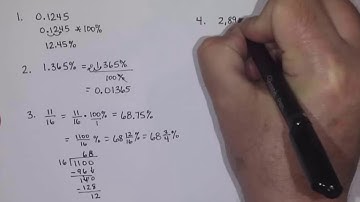 1. 0.1245
0.1245 * 100%
12.45%
2. 1.365% = 01.365% / 100%
= 0.01365
3. 11/16 = 11/16 · 100/1 % = 68.75%
= 1100/16 % = 68 12/16 % = 68 3/4 %
68
16 1100
-96
140
-128
12
4. 2,89